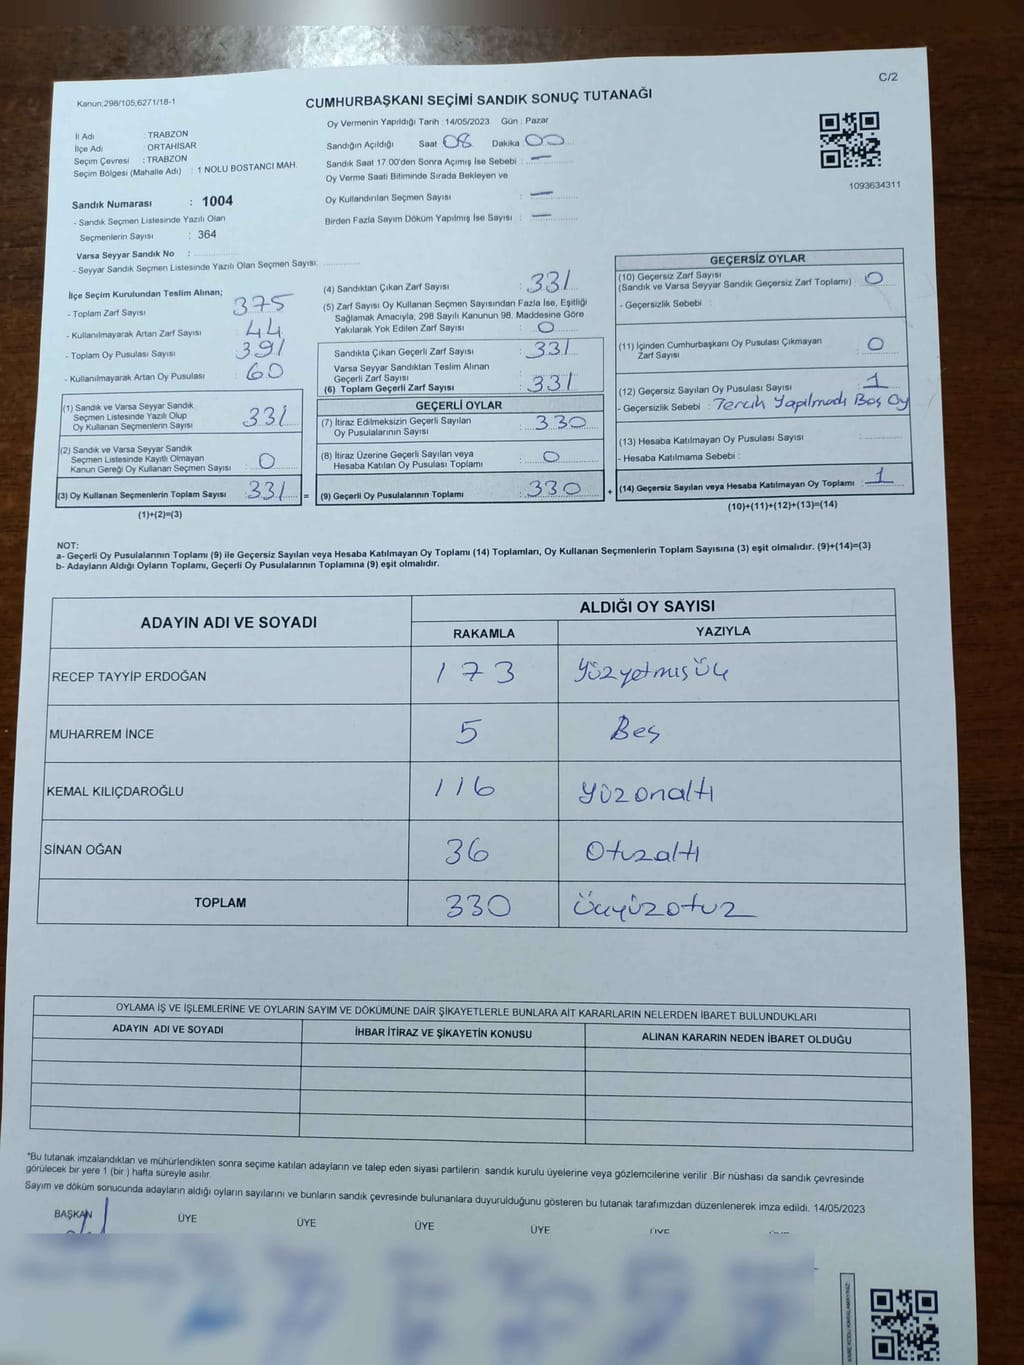 C/2
Kanun,298/105;6271/18-1
CUMHURBAŞKANI SEÇİMİ SANDIK SONUÇ TUTANAĞI
İl Adı : TRABZON
İlçe Adı : ORTAHİSAR
Seçim Çevresi : TRABZON
Seçim Bölgesi (Mahalle Adı) : 1 NOLU BOSTANCI MAH.
Oy Vermenin Yapıldığı Tarih : 14/05/2023 Gün : Pazar
Sandığın Açıldığı Saat 08 Dakika 00
Sandık Saat 17:00'den Sonra Açımış İse Sebebi : —
Oy Verme Saati Bitiminde Sırada Bekleyen ve
Oy Kullandırılan Seçmen Sayısı : —
Birden Fazla Sayım Döküm Yapılmış İse Sayısı : —
1093634311
Sandık Numarası : 1004
- Sandık Seçmen Listesinde Yazılı Olan
Seçmenlerin Sayısı : 364
Varsa Seyyar Sandık No :
- Seyyar Sandık Seçmen Listesinde Yazılı Olan Seçmen Sayısı:
İlçe Seçim Kurulundan Teslim Alınan;
- Toplam Zarf Sayısı : 375
- Kullanılmayarak Artan Zarf Sayısı : 44
- Toplam Oy Pusulası Sayısı : 391
- Kullanılmayarak Artan Oy Pusulası : 60
(1) Sandık ve Varsa Seyyar Sandık
Seçmen Listesinde Yazılı Olup
Oy Kullanan Seçmenlerin Sayısı : 331
(2) Sandık ve Varsa Seyyar Sandık
Seçmen Listesinde Kayıtlı Olmayan
Kanun Gereği Oy Kullanan Seçmen Sayısı : 0
(3) Oy Kullanan Seçmenlerin Toplam Sayısı : 331 =
(1)+(2)=(3)
(4) Sandıktan Çıkan Zarf Sayısı : 331
(5) Zarf Sayısı Oy Kullanan Seçmen Sayısından Fazla İse, Eşitliği
Sağlamak Amacıyla; 298 Sayılı Kanunun 98. Maddesine Göre
Yakılarak Yok Edilen Zarf Sayısı : 0
Sandıkta Çıkan Geçerli Zarf Sayısı : 331
Varsa Seyyar Sandıktan Teslim Alınan
Geçerli Zarf Sayısı
(6) Toplam Geçerli Zarf Sayısı : 331
GEÇERLİ OYLAR
(7) İtiraz Edilmeksizin Geçerli Sayılan
Oy Pusulalarının Sayısı : 330
(8) İtiraz Üzerine Geçerli Sayılan veya
Hesaba Katılan Oy Pusulası Toplamı : 0
(9) Geçerli Oy Pusulalarının Toplamı : 330 +
GEÇERSİZ OYLAR
(10) Geçersiz Zarf Sayısı
(Sandık ve Varsa Seyyar Sandık Geçersiz Zarf Toplamı) : 0
- Geçersizlik Sebebi :
(11) İçinden Cumhurbaşkanı Oy Pusulası Çıkmayan
Zarf Sayısı : 0
(12) Geçersiz Sayılan Oy Pusulası Sayısı : 1
- Geçersizlik Sebebi : Tercih Yapılmadı Boş Oy
(13) Hesaba Katılmayan Oy Pusulası Sayısı :
- Hesaba Katılmama Sebebi :
(14) Geçersiz Sayılan veya Hesaba Katılmayan Oy Toplamı : 1
(10)+(11)+(12)+(13)=(14)
NOT:
a- Geçerli Oy Pusulalarının Toplamı (9) ile Geçersiz Sayılan veya Hesaba Katılmayan Oy Toplamı (14) Toplamları, Oy Kullanan Seçmenlerin Toplam Sayısına (3) eşit olmalıdır. (9)+(14)=(3)
b- Adayların Aldığı Oyların Toplamı, Geçerli Oy Pusulalarının Toplamına (9) eşit olmalıdır.
ADAYIN ADI VE SOYADI
ALDIĞI OY SAYISI
RAKAMLA YAZIYLA
RECEP TAYYİP ERDOĞAN 173 Yüzyetmişüç
MUHARREM İNCE 5 Beş
KEMAL KILIÇDAROĞLU 116 Yüzonaltı
SİNAN OĞAN 36 Otuzaltı
TOPLAM 330 Üçyüzotuz
OYLAMA İŞ VE İŞLEMLERİNE VE OYLARIN SAYIM VE DÖKÜMÜNE DAİR ŞİKAYETLERLE BUNLARA AİT KARARLARIN NELERDEN İBARET BULUNDUKLARI
ADAYIN ADI VE SOYADI İHBAR İTİRAZ VE ŞİKAYETİN KONUSU ALINAN KARARIN NEDEN İBARET OLDUĞU
*Bu tutanak imzalandıktan ve mühürlendikten sonra seçime katılan adayların ve talep eden siyasi partilerin sandık kurulu üyelerine veya gözlemcilerine verilir. Bir nüshası da sandık çevresinde
görülecek bir yere 1 (bir ) hafta süreyle asılır.
Sayım ve döküm sonucunda adayların aldığı oyların sayılarını ve bunların sandık çevresinde bulunanlara duyurulduğunu gösteren bu tutanak tarafımızdan düzenlenerek imza edildi. 14/05/2023
BAŞKAN ÜYE ÜYE ÜYE ÜYE ÜYE